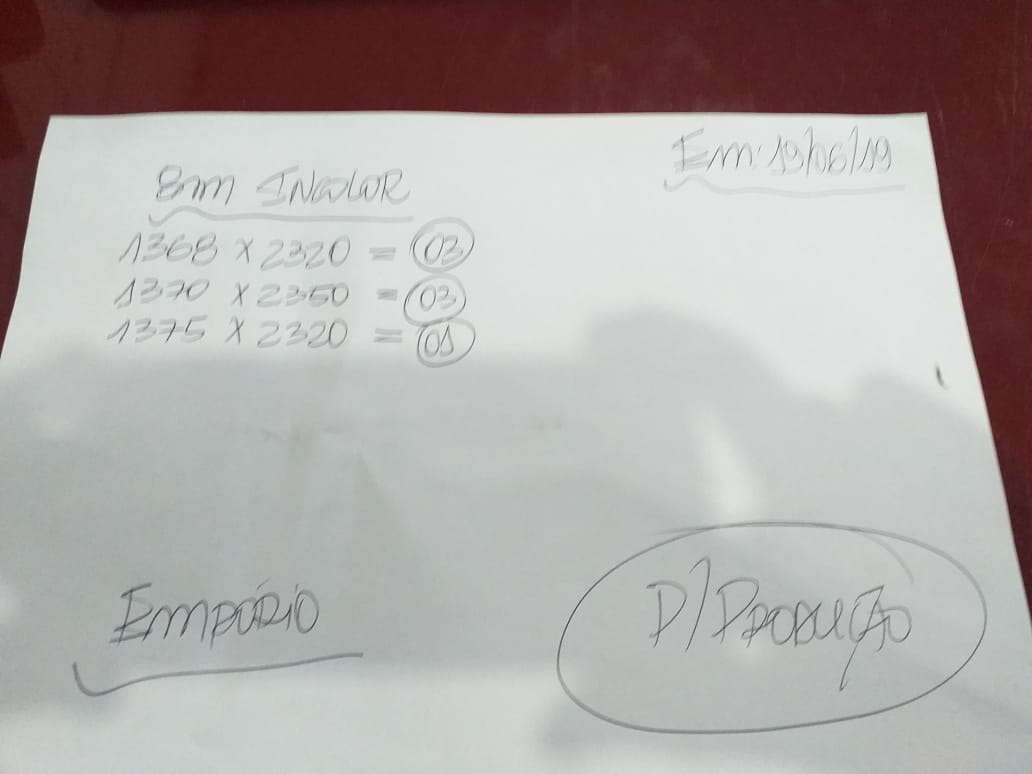 Em: 19/06/19
8mm INCOLOR
1368 x 2320 = 03
1370 x 2350 = 03
1375 x 2320 = 01
EMPÓRIO
P/PRODUÇÃO